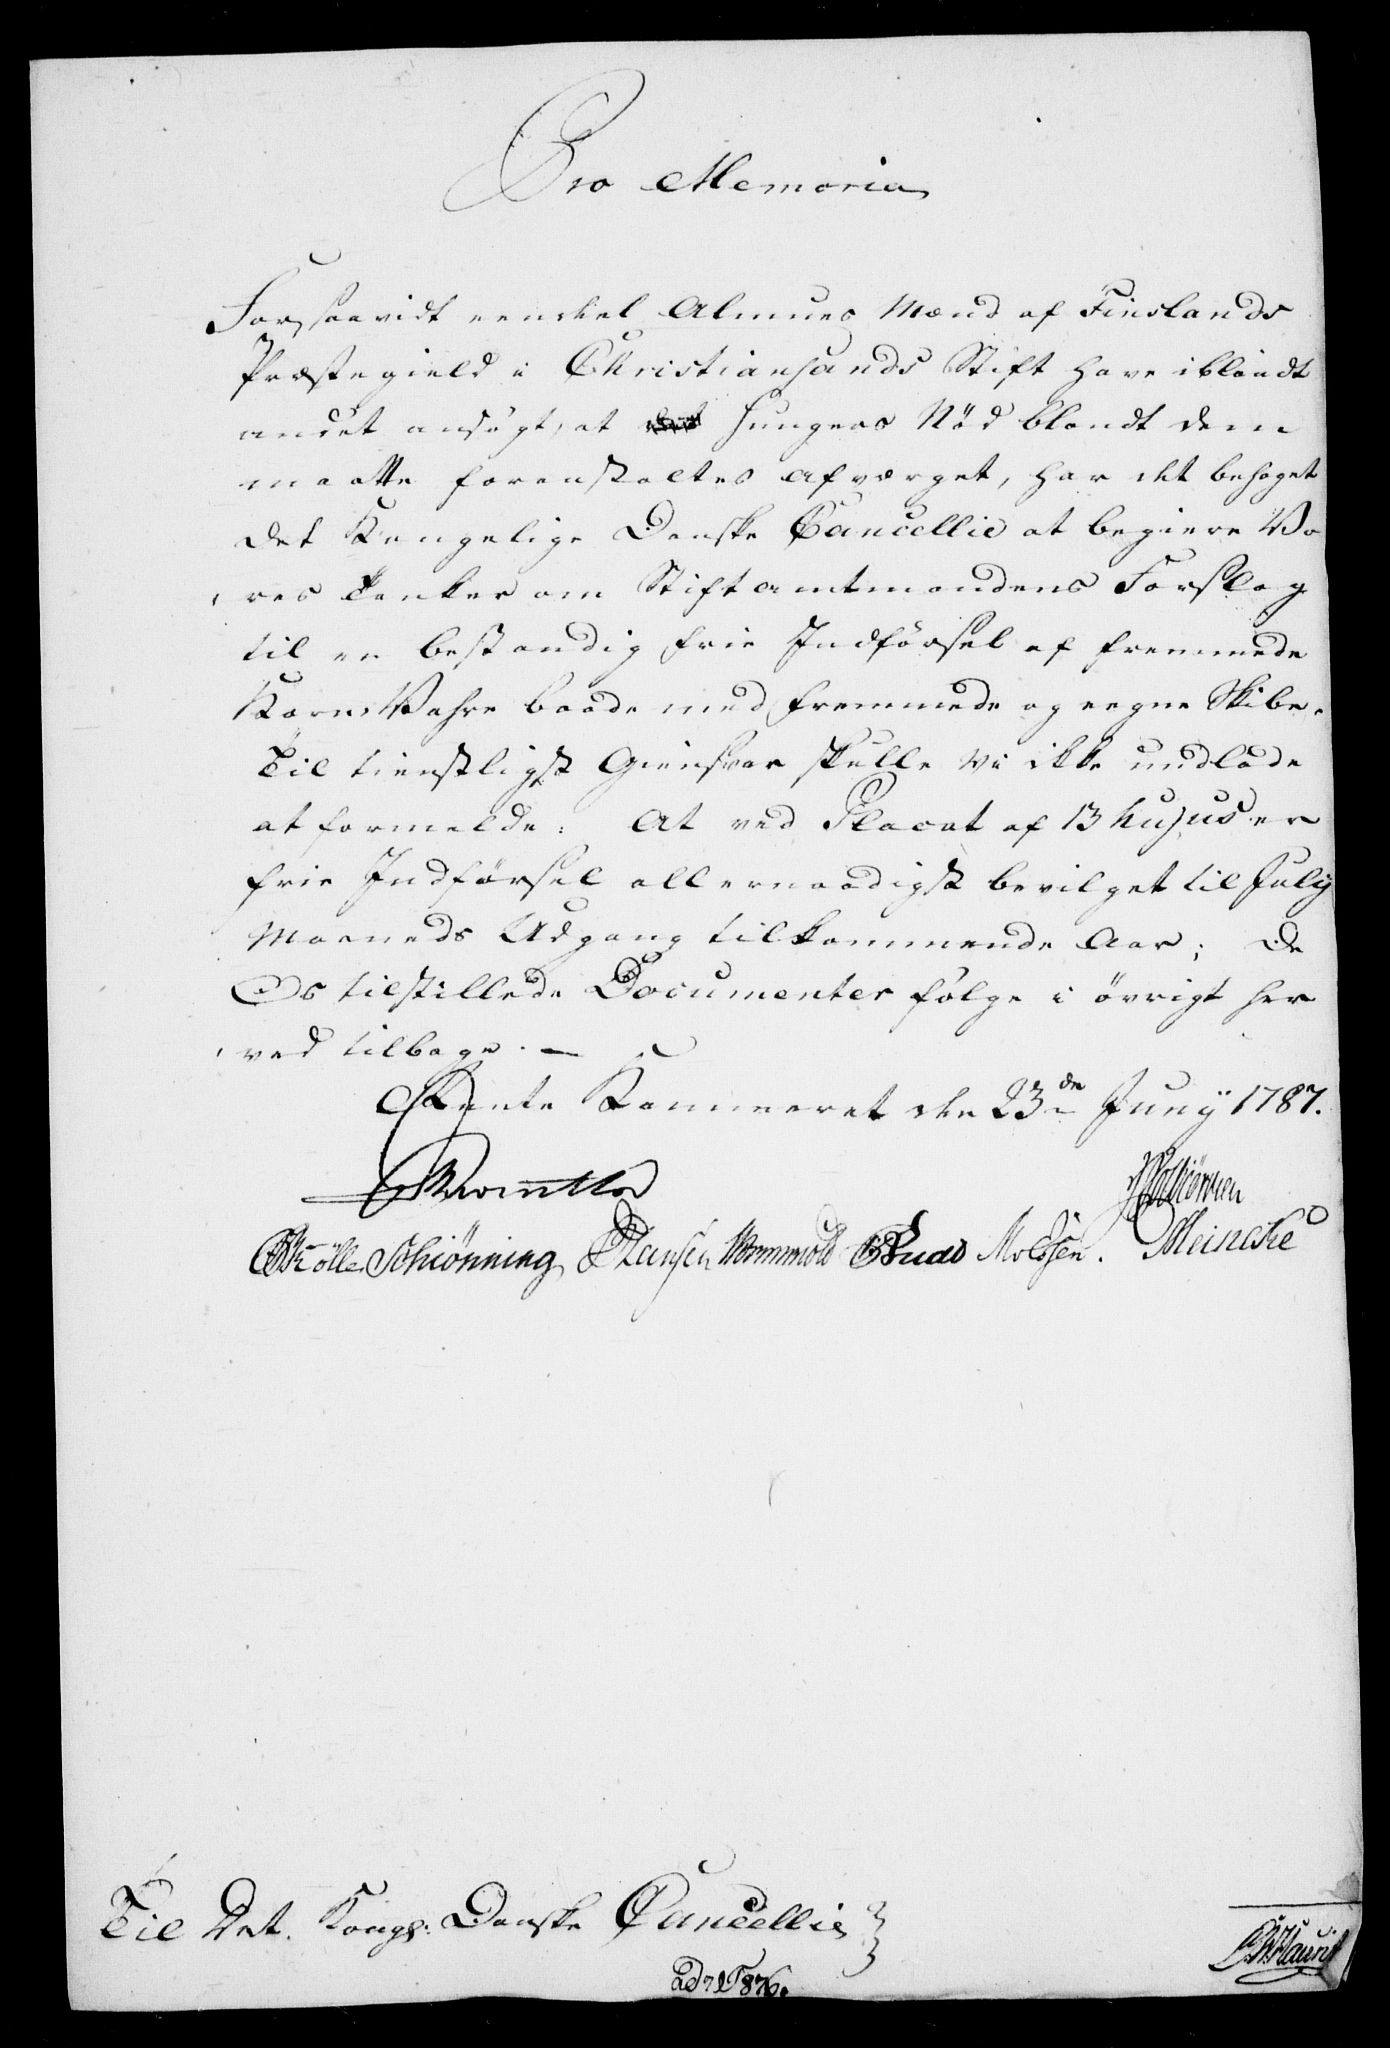 Pro Memoria
Forsaavidt eendeel Almues Mænd af Finslands
Præstegield i Christiansands Stift have iblandt
andet ansøgt, at Hungers Nød blandt dem
maatte foranstaltes afværget, har det behaget
det Kongelige Danske Cancellie at begiere Vo
res Tanker om Stiftamtmandens Forslag
til en bestandig frie Indførsel af fremmede
Korn Vahre baade med fremmede og eegne Skibe.
Til tienstligst Giensvar skulle vi ikke undlade
at formelde: At ved Placat af 13 hujus er
frie Indførsel allernaadigst bevilget til July
Maaneds Udgang tilkommende Aar; De
Os tilstillede Documenter følge i øvrigt her
ved tilbage. —
Rente Kammeret den 23de Juny 1787.
Schiønning Hansen Wormskiold Moldsen. Meincke
Til Det. Kongl: Danske Cancellie